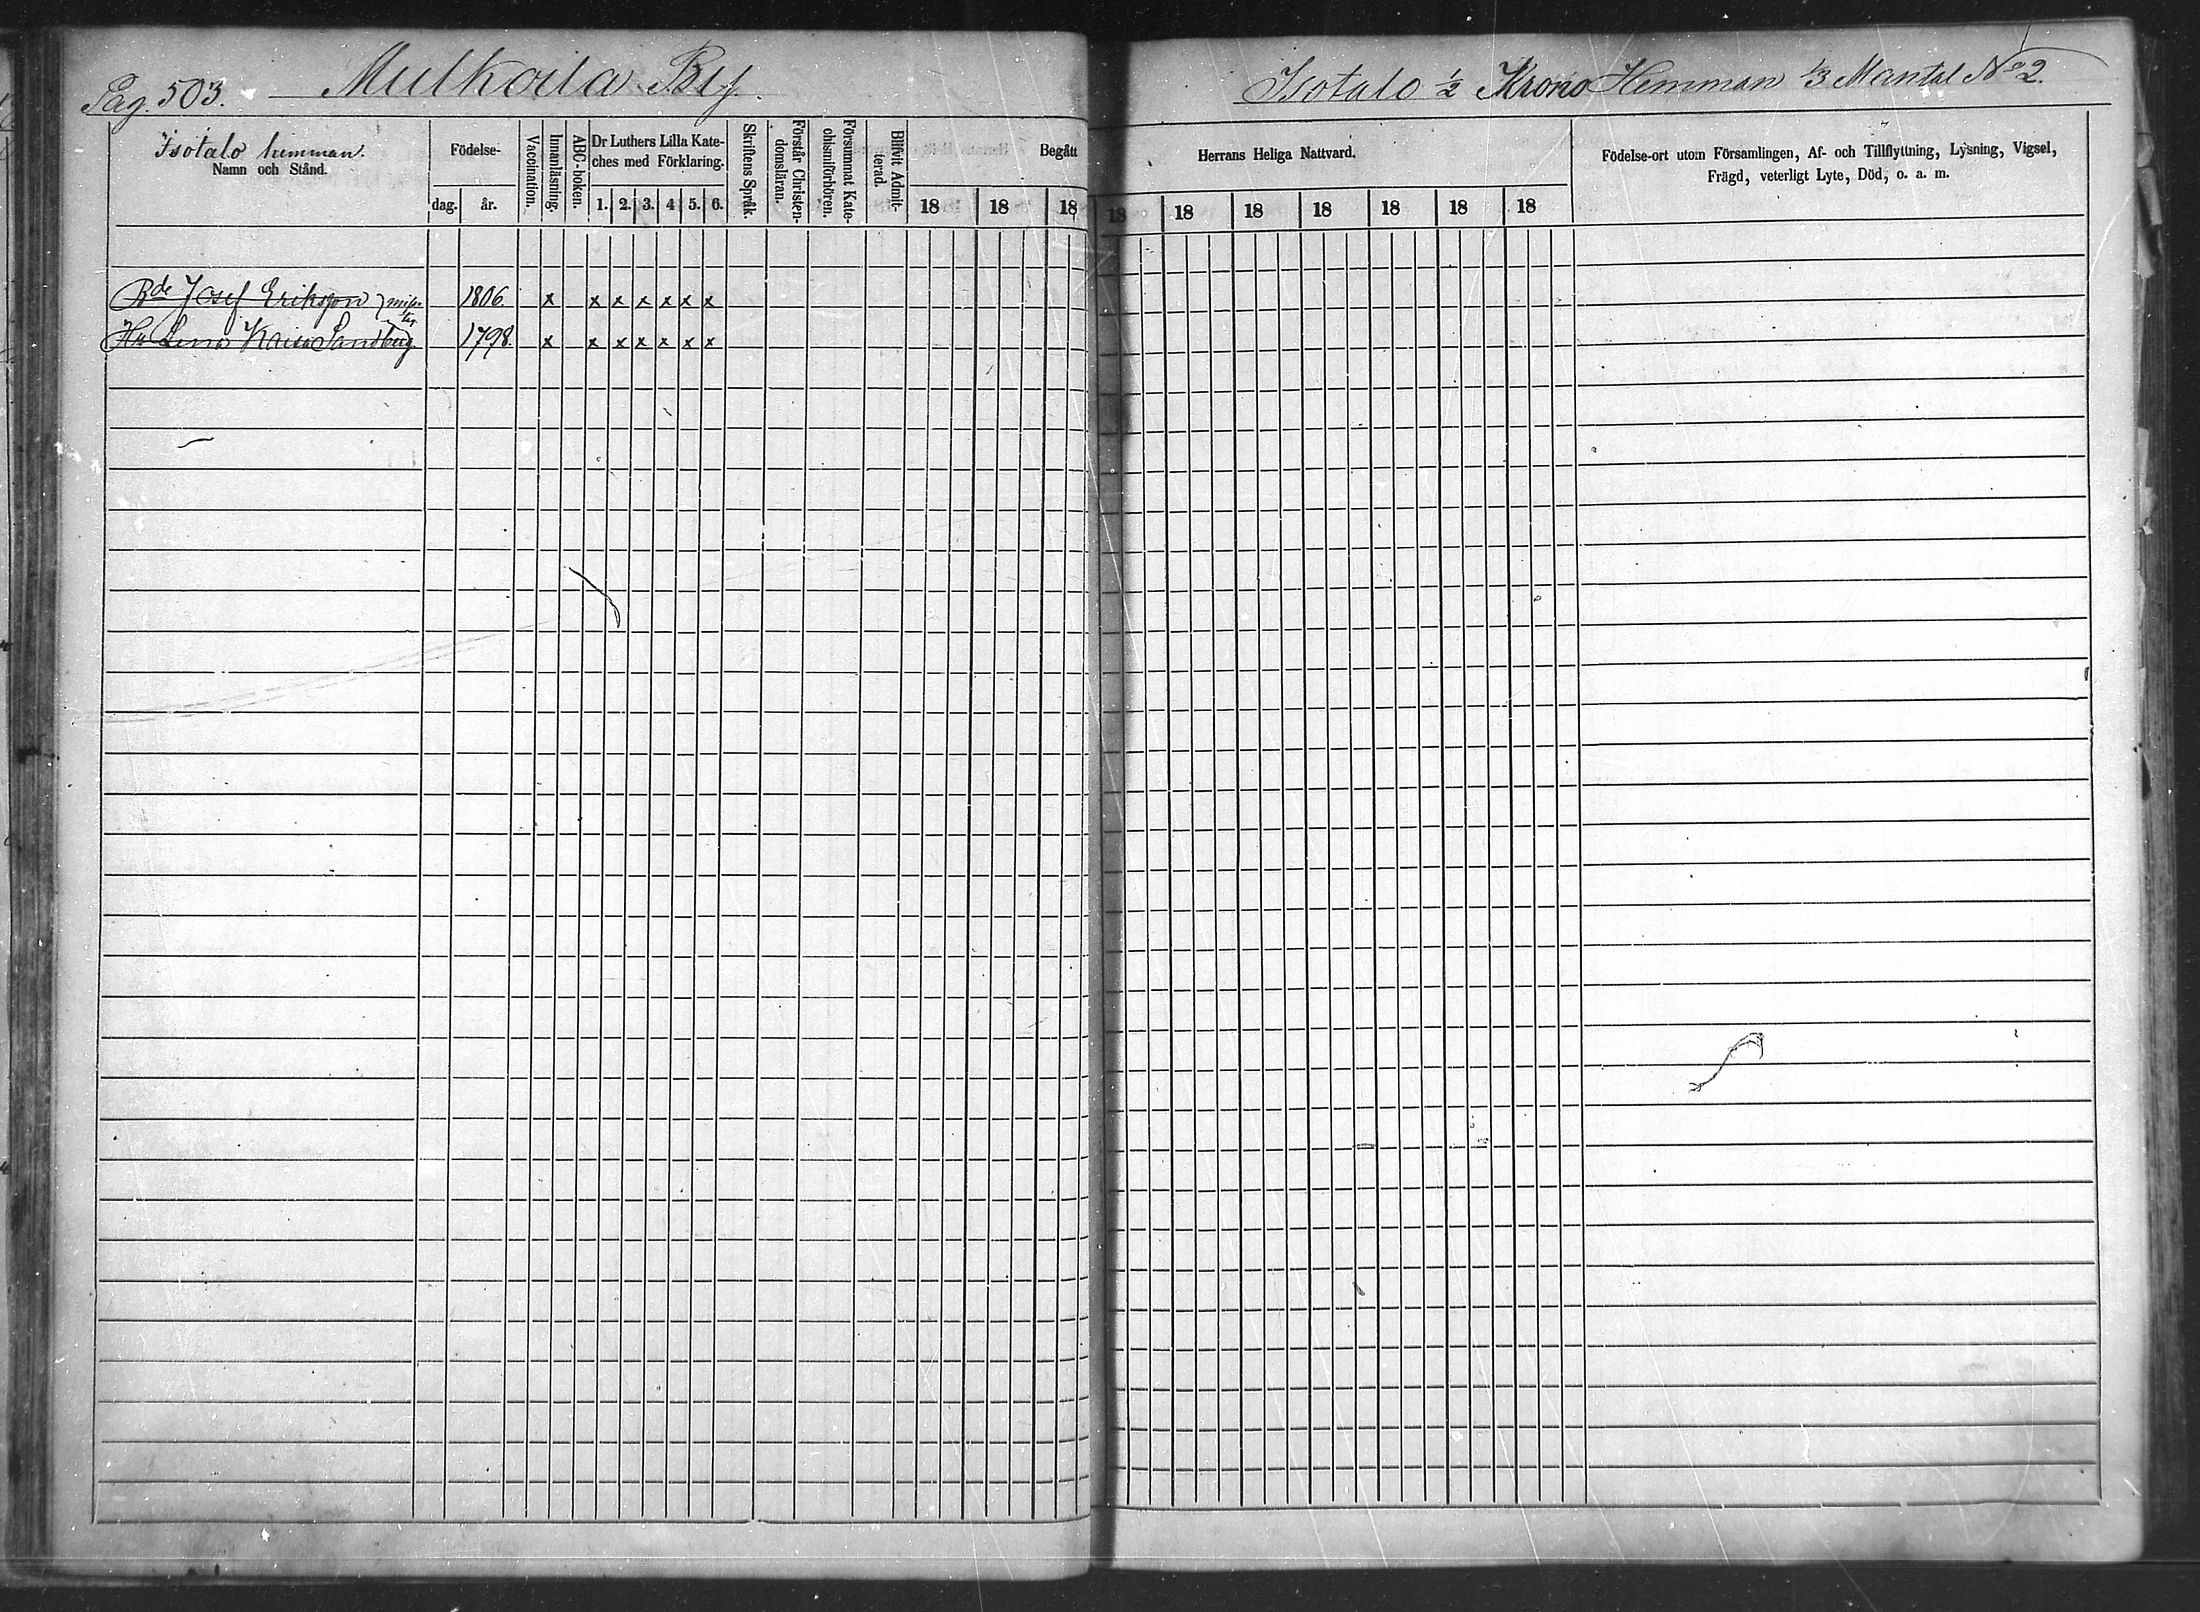 Pag. 503. Mulkoila By.
Isotalo ½ Krono Hemman ⅓ Mantal No 2.
Isotalo hemman.
Namn och Stånd.
Födelse-
dag. år.
Vaccination.
Innanläsning.
ABC-boken.
Dr Luthers Lilla Kate-
ches med Förklaring.
1. 2. 3. 4 5. 6.
Skriftens Språk.
Förstår Christen-
domsläran.
Försummat Kate-
chismiförhören.
Blifvit Admit-
terad.
Begått Herrans Heliga Nattvard.
18 18 18 18 18 18 18 18 18 18
Födelse-ort utom Församlingen, Af- och Tillflyttning, Lysning, Vigsel,
Frägd, veterligt Lyte, Död, o. a. m.
Bde Josef Eriksson 1806. x x x x x x x
Hu Lena Kaisa Sandberg 1798. x x x x x x x